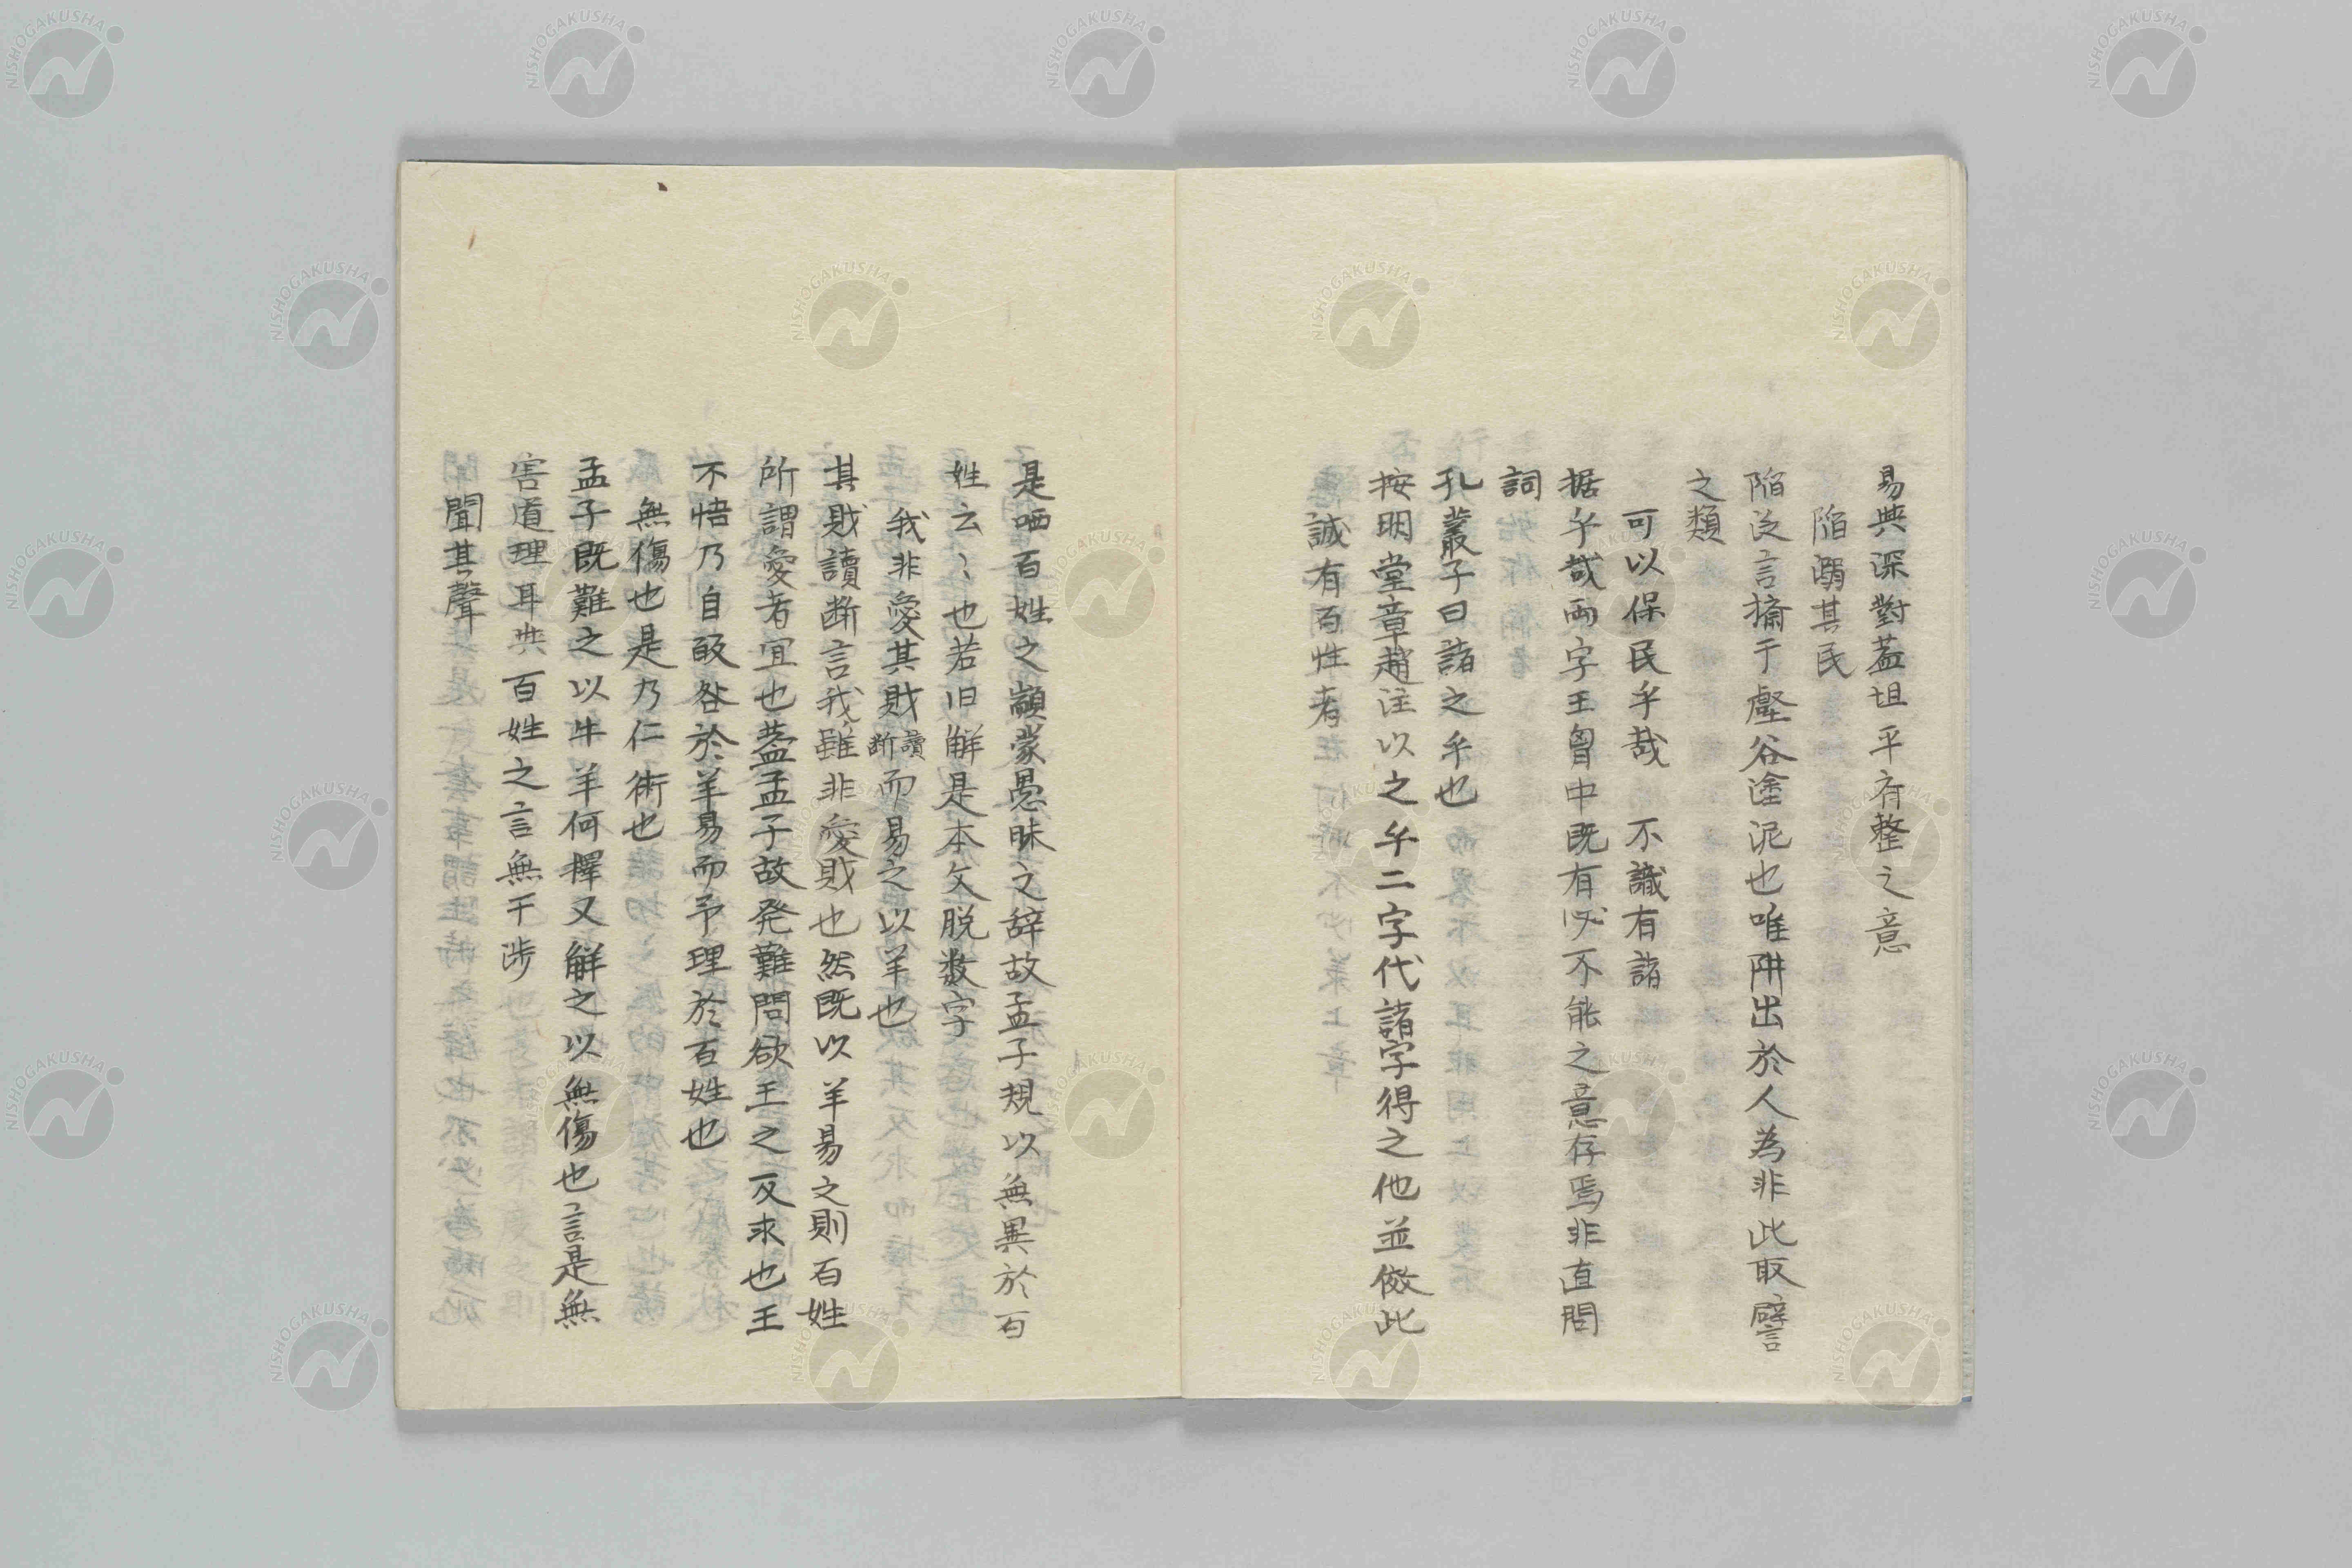 易與深對蓋坦平有整之意
陷溺其民
陷泛言擠于壑谷塗泥也唯阱出於人為非此取譬
之類
可以保民乎哉 不識有諸
据乎哉両字王胷中既有必不能之意存焉非直問
詞
孔叢子曰諸之乎也
按明堂章趙注以之乎二字代諸字得之他並倣此
誠有百姓者
是哂百姓之顓蒙愚昧之辞故孟子規以無異於百
姓云〻也若旧解是本文脱数字
我非愛其財讀断而易之以羊也
其財讀断言我雖非愛財也然既以羊易之則百姓
所謂愛者宜也葢孟子故発難問欲王之反求也王
不悟乃自歸咎於羊易而予理於百姓也
無傷也是乃仁術也
孟子既難之以牛羊何擇又解之以無傷也言是無
害道理耳與百姓之言無干涉
聞其聲
NISHOGAKUSHA